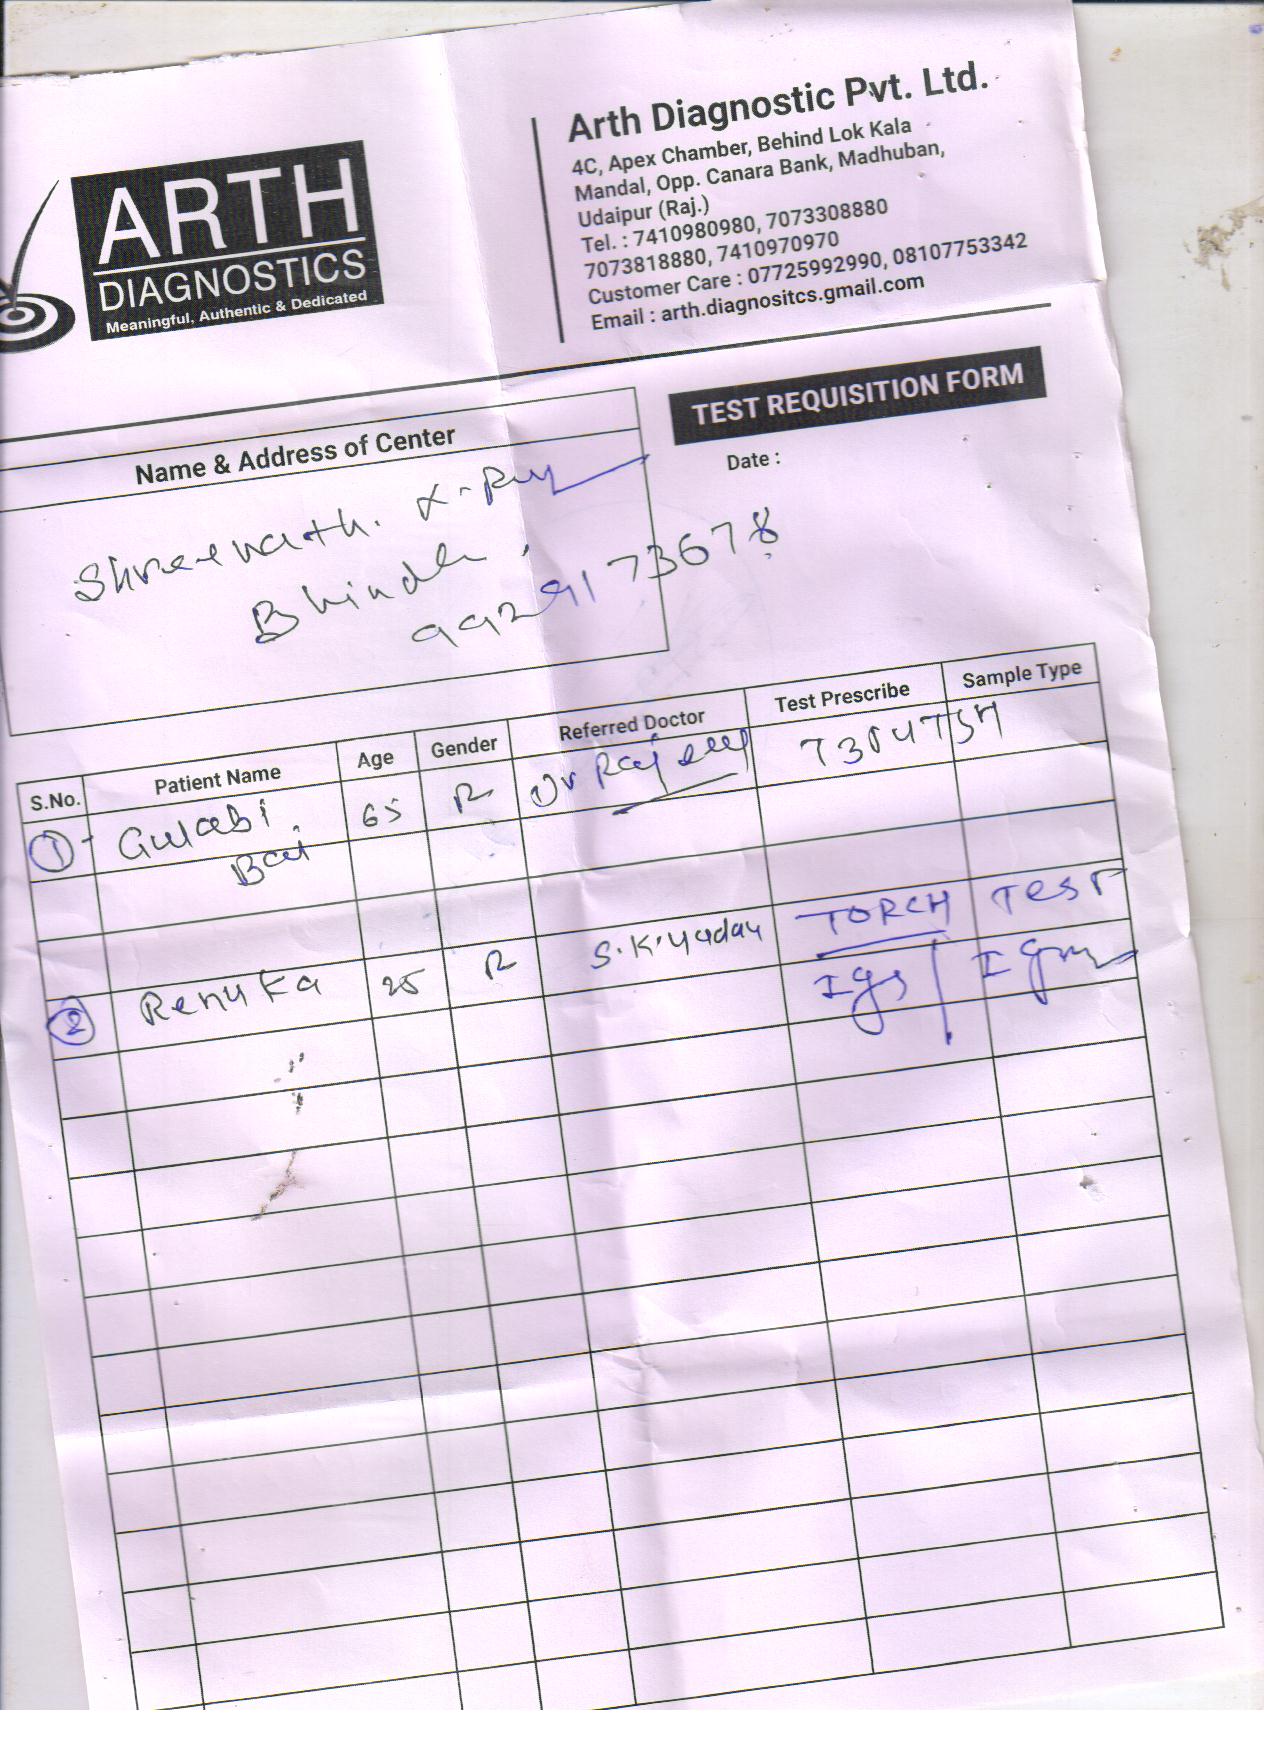 ARTH
DIAGNOSTICS
Meaningful, Authentic & Dedicated
Arth Diagnostic Pvt. Ltd.
4C, Apex Chamber, Behind Lok Kala
Mandal, Opp. Canara Bank, Madhuban,
Udaipur (Raj.)
Tel. : 7410980980, 7073308880
7073818880, 7410970970
Customer Care : 07725992990, 08107753342
Email : arth.diagnositcs.gmail.com
TEST REQUISITION FORM
Date :
Name & Address of Center
Shreenath. X-Ray
Bhinder
9929173678
S.No. Patient Name Age Gender Referred Doctor Test Prescribe Sample Type
1 Gulabi 65 Dr Rajeep T3T4TSH
Bai
2 Renuka 25 S.K.Yadav TORCH TEST
Igs / Igm